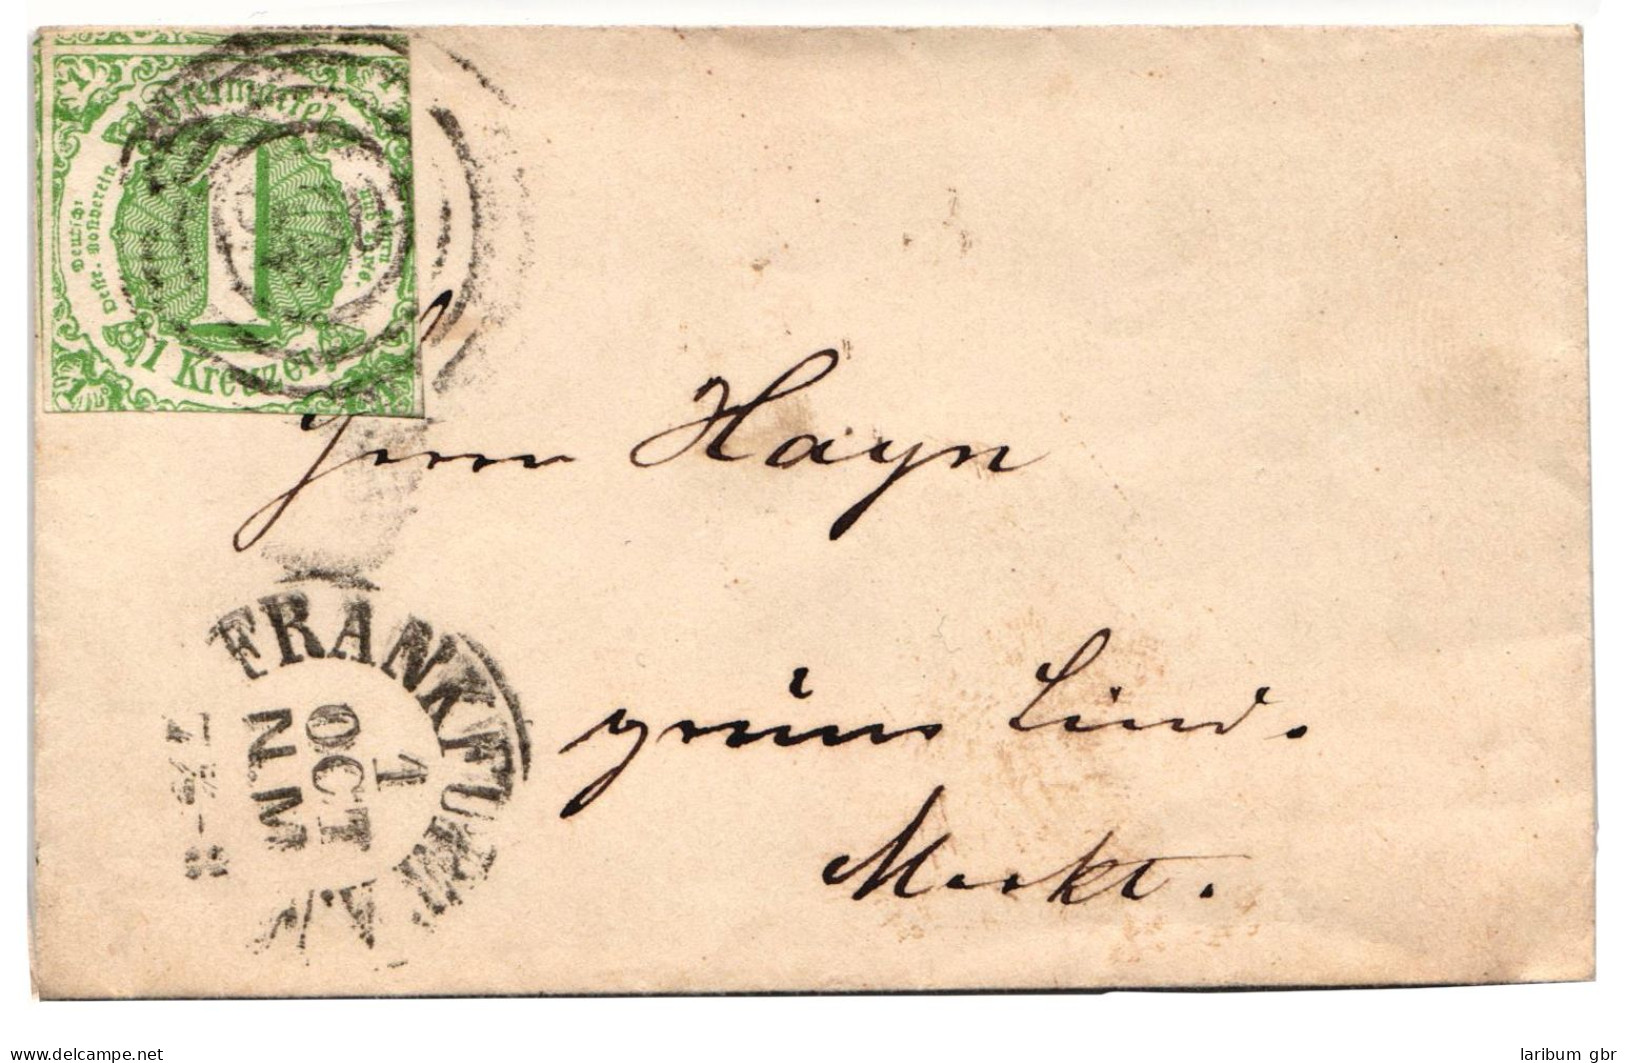 Freimarke
Deutsch-
Oestr. Postverein.
Thurn
und Taxis.
1
1 Kreuzer
Herrn Hayn
FRANKFURT A.M.
1
OCT
NM
grüne Lind.
Markt.
www.delcampe.net
laribum gbr